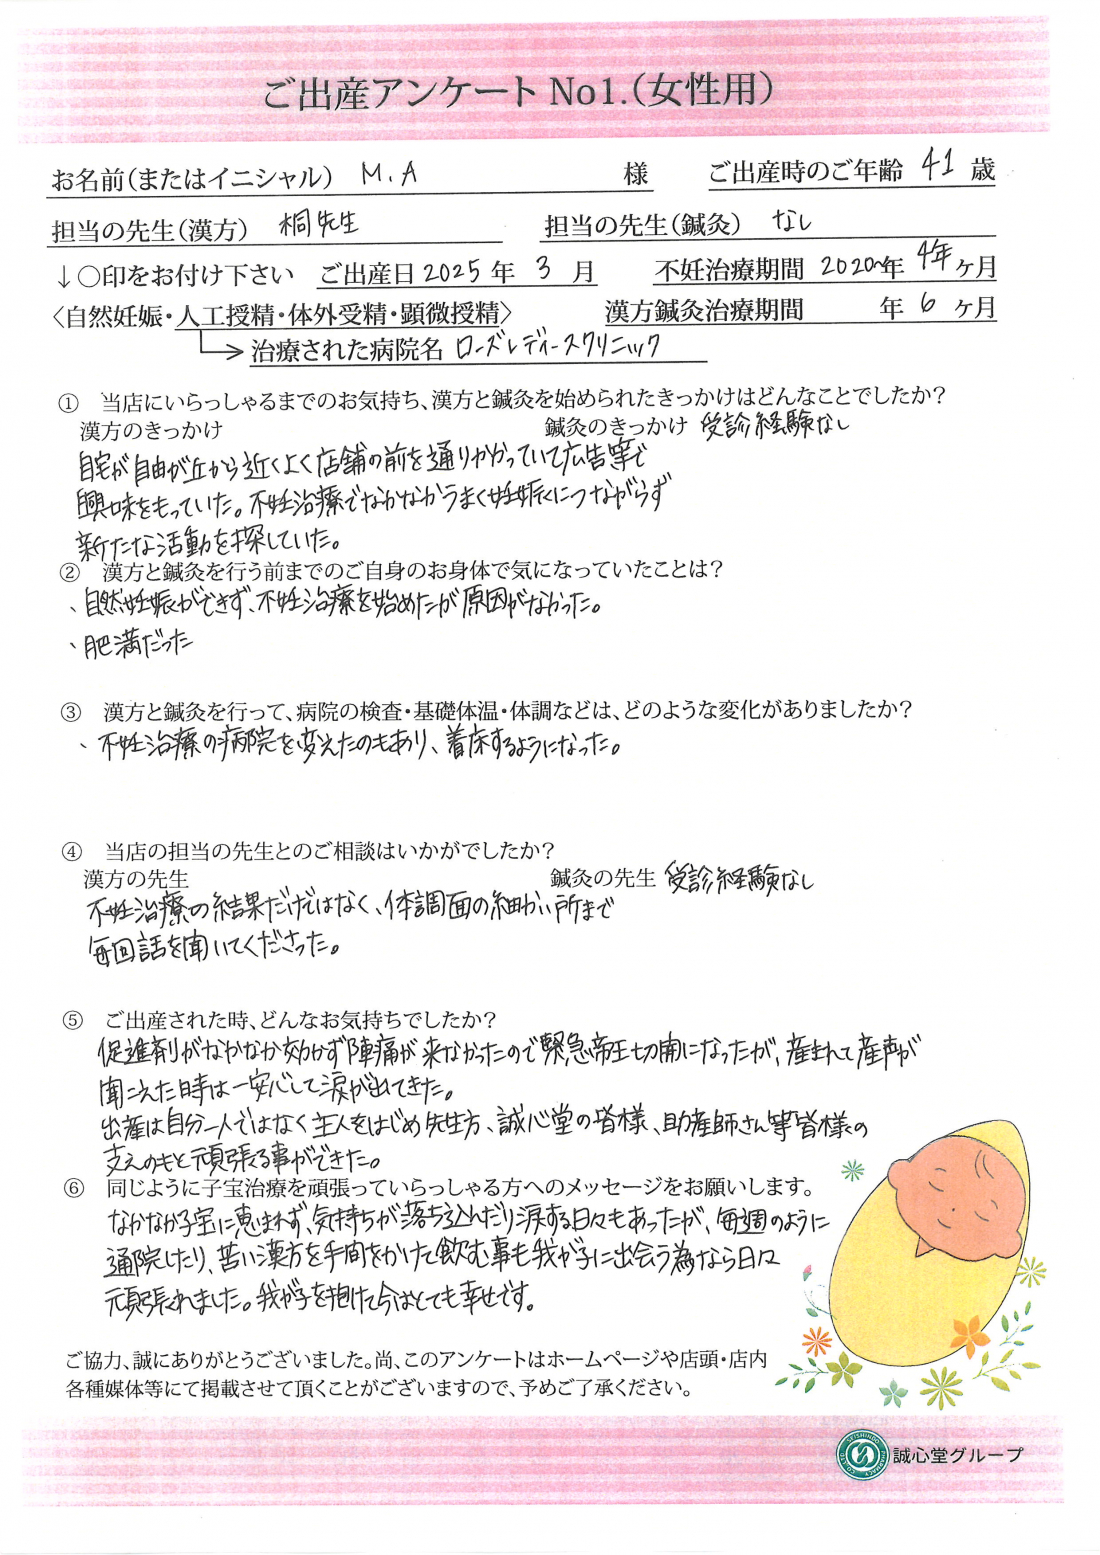 ご出産アンケート No1.(女性用)
お名前(またはイニシャル) M.A 様 ご出産時のご年齢 41 歳
担当の先生(漢方) 桐先生 担当の先生(鍼灸) なし
↓○印をお付け下さい ご出産日 2025 年 3 月 不妊治療期間 2020~年 4年 ヶ月
〈自然妊娠・人工授精・体外受精・顕微授精〉 漢方鍼灸治療期間 年 6 ヶ月
治療された病院名 ローズレディースクリニック
① 当店にいらっしゃるまでのお気持ち、漢方と鍼灸を始められたきっかけはどんなことでしたか?
漢方のきっかけ 鍼灸のきっかけ 受診経験なし
自宅が自由が丘から近くよく店舗の前を通りかかっていて広告等で
興味をもっていた。不妊治療でなかなかうまく妊娠につながらず
新たな活動を探していた。
② 漢方と鍼灸を行う前までのご自身のお身体で気になっていたことは?
、自然妊娠ができず、不妊治療を始めたが原因がなかった。
、肥満だった
③ 漢方と鍼灸を行って、病院の検査・基礎体温・体調などは、どのような変化がありましたか?
、不妊治療の病院を変えたのもあり、着床するようになった。
④ 当店の担当の先生とのご相談はいかがでしたか?
漢方の先生 鍼灸の先生 受診経験なし
不妊治療の結果だけではなく、体調面の細かい所まで
毎回話を聞いてくださった。
⑤ ご出産された時、どんなお気持ちでしたか?
促進剤がなかなか効かず陣痛が来なかったので緊急帝王切開になったが、産まれて産声が
聞こえた時は一安心して涙が出てきた。
出産は自分一人ではなく主人をはじめ先生方、誠心堂の皆様、助産師さん等皆様の
支えのもと頑張る事ができた。
⑥ 同じように子宝治療を頑張っていらっしゃる方へのメッセージをお願いします。
なかなか子宝に恵まれず、気持ちが落ち込んだり涙する日々もあったが、毎週のように
通院したり、苦い漢方を手間をかけて飲む事も我が子に出会う為なら日々
頑張れました。我が子を抱けて今はとても幸せです。
ご協力、誠にありがとうございました。尚、このアンケートはホームページや店頭・店内
各種媒体等にて掲載させて頂くことがございますので、予めご了承ください。
誠心堂グループ